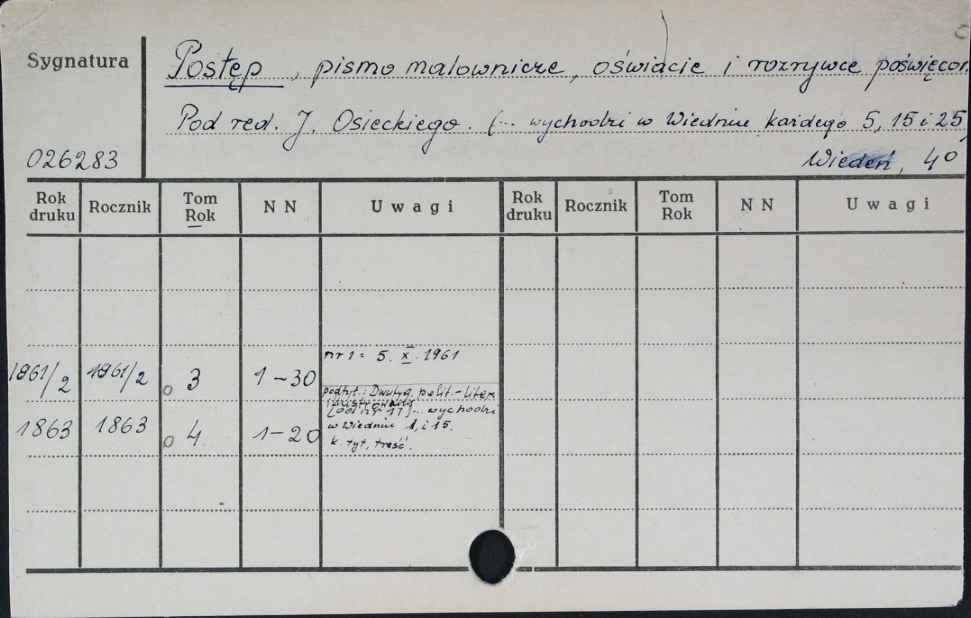 Sygnatura
Postęp, pismo malownicze, oświacie i rozrywce poświęcon
Pod red. J. Osieckiego. (... wychodzi w Wiedniu każdego 5, 15 i 25
026283
Wiedeń, 4°
Rok druku Rocznik Tom Rok N N Uwagi Rok druku Rocznik Tom Rok N N Uwagi
nr 1 = 5. X. 1961
1961/2 1961/2 o 3 1-30
podtyt.: Dwutyg. polit.-liter.
[od nr 17] ... wychodzi
1863 1863 o 4 1-20 w Wiedniu 1, i 15.
k. tyt, treść.